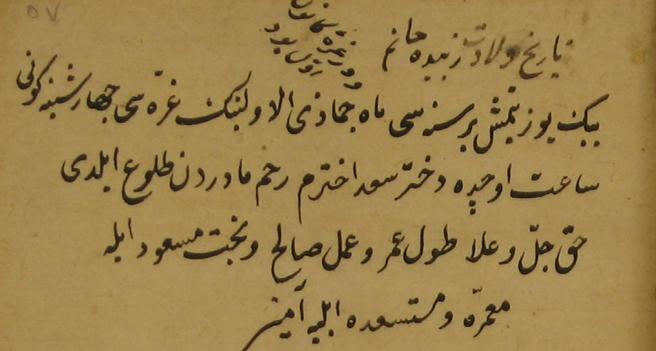 تاریخ ولادت زبیده خانم
بیك یوز یتمش بر سنه سی ماه جماذی الاولینك غره سی چهارشنبه کونی
ساعت اوچده دختر سعد اخترم رحم مادردن طلوع ایلدی
حق جل وعلا طول عمر وعمل صالح وبخت مسعود ایله
معمره ومستسعده ایلیه آمین